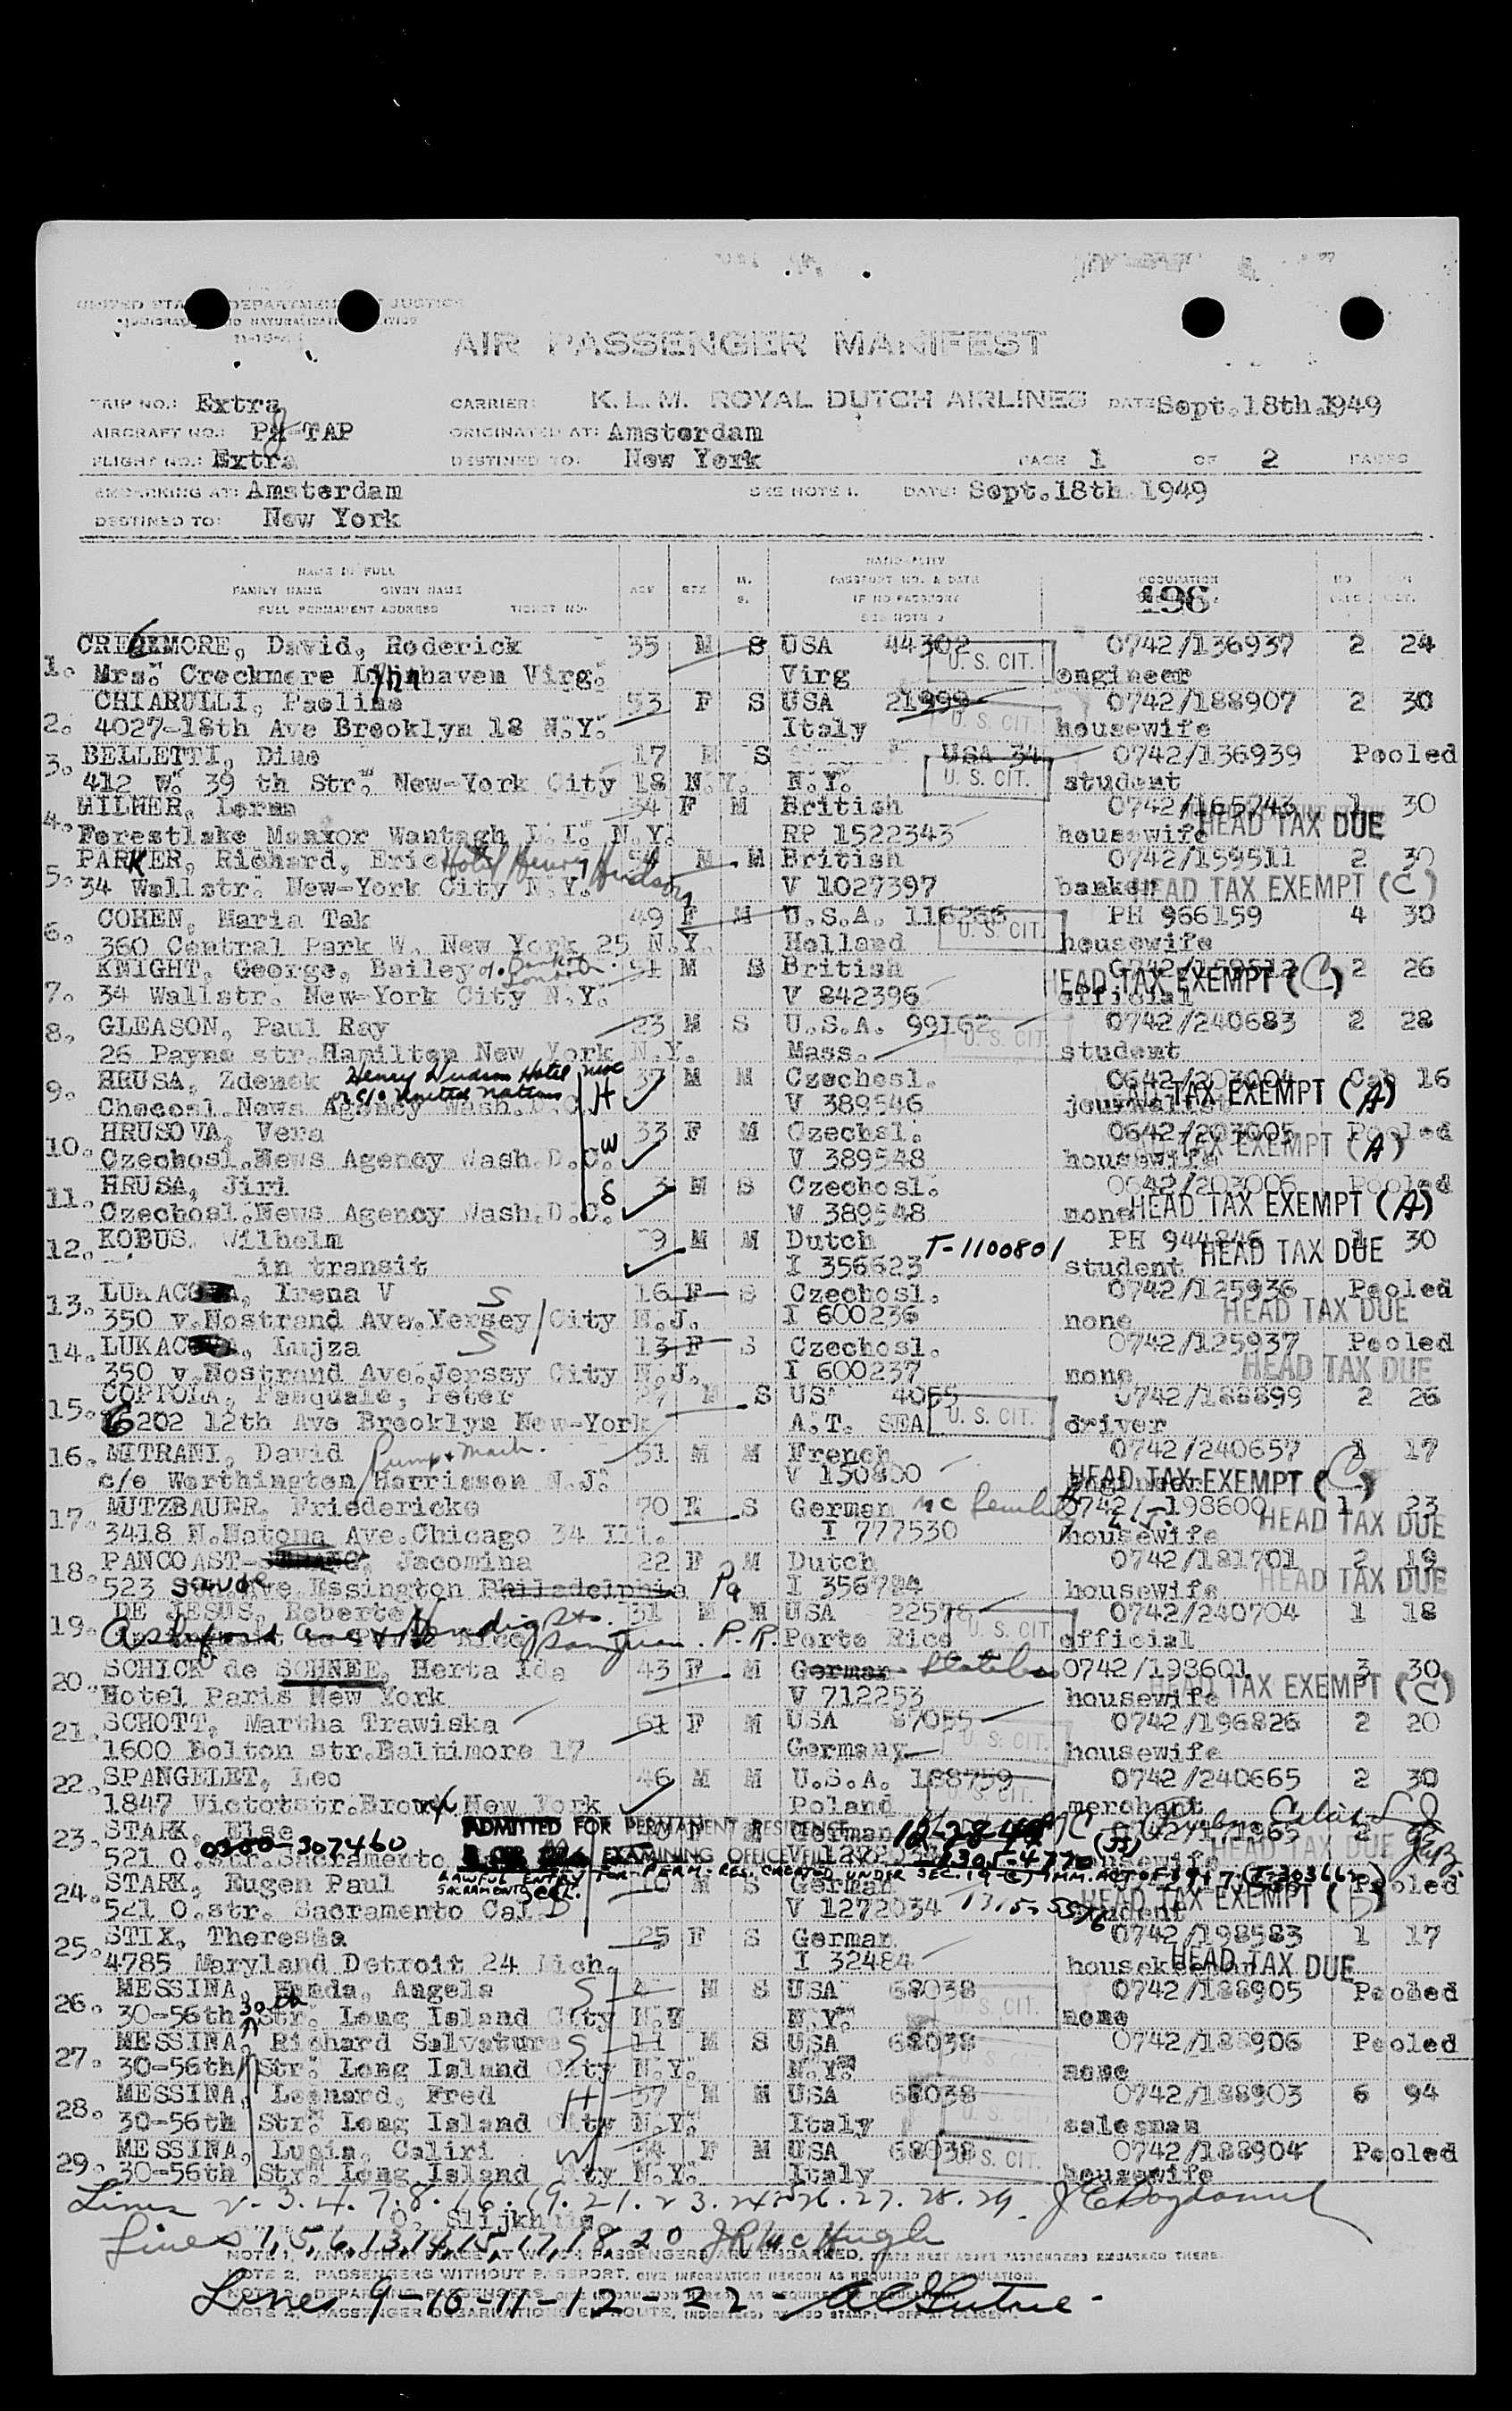 UNITED STATES DEPARTMENT OF JUSTICE
IMMIGRATION AND NATURALIZATION SERVICE
AIR PASSENGER MANIFEST
TRIP NO.: Extra CARRIER: K.L.M. ROYAL DUTCH AIRLINES DATE Sept.18th.1949
AIRCRAFT NO.: PH-TAP ORIGINATED AT: Amsterdam
FLIGHT NO.: Extra DESTINED TO: New York PAGE 1 OF 2 PAGES
EMBARKING AT: Amsterdam SEE NOTE 1. DATE: Sept.18th.1949
DESTINED TO: New York
NAME IN FULL NATIONALITY
FAMILY NAME GIVEN NAME AGE SEX M. S. PASSPORT NO. & DATE OCCUPATION
FULL PERMANENT ADDRESS TICKET NO. IF NO PASSPORT 196
SEE NOTE 2
CREEKMORE, David, Roderick 35 M S USA 44302 U. S. CIT. 0742/136937 2 24
1. Mrs. Creekmore Lynnhaven Virg. Virg engineer
CHIARULLI, Paoline 53 F S USA 21999 0742/188907 2 30
2. 4027-18th Ave Brooklyn 18 N.Y. Italy U. S. CIT. housewife
3. BELLETTI, Dino 17 M S USA 34 0742/136939 Pooled
412 W. 39 th Str. New-York City 18 N.Y. N.Y. U. S. CIT. student
4. MILNER, Lorna 34 F M British 0742/165743 1 30
Forestlake Manxor Wantagh L.I. N.Y. RP 1522343 housewife HEAD TAX DUE
5. PARKER, Richard, Eric Hotel Henry Hudson M M British 0742/159511 2 30
34 Wallstr. New-York City N.Y. V 1027397 banker HEAD TAX EXEMPT (C)
6. COHEN, Maria Tak 49 F M U.S.A. 116266 PH 966159 4 30
360 Central Park W. New York 25 N.Y. Holland U. S. CIT. housewife
KNIGHT, George, Bailey of Bank of London 51 M S British 0742/159512 2 26
7. 34 Wallstr. New-York City N.Y. V 842396 official HEAD TAX EXEMPT (C)
8. GLEASON, Paul Ray 23 M S U.S.A. 99162 0742/240683 2 28
26 Payne str.Hamilton New York N.Y. Mass. U. S. CIT student
9. HRUSA, Zdenek Henry Hudson Hotel NYC 37 M M Czechosl. 0642/203004 16
Checosl.News Agency Wash.D.C. or c/o United Nations H V 389546 journalist HEAD TAX EXEMPT (A)
10. HRUSOVA, Vera W 33 F M Czechsl. 0642/203005 Pooled
Czechosl.News Agency Wash.D.C. V 389548 housewife HEAD TAX EXEMPT (A)
11. HRUSA, Jiri S 3 M S Czechosl. 0642/203006 Pooled
Czechosl.News Agency Wash.D.C. V 389548 none HEAD TAX EXEMPT (A)
12. KOBUS. Wilhelm M M Dutch T-1100801 PH 944846 1 30
in transit I 356623 student HEAD TAX DUE
13. LUKAC, Irena V S 16 F S Czechosl. 0742/125936 Pooled
350 v.Nostrand Ave.Yersey City N.J. I 600236 none HEAD TAX DUE
14. LUKAC, Lujza S 13 F S Czechosl. 0742/125937 Pooled
350 v.Nostrand Ave.Jersey City N.J. I 600237 none HEAD TAX DUE
15. COPPOLA, Pasquale, Peter 27 M S US 4055 0742/188899 2 26
6202 12th Ave Brooklyn New-York A.T. SEA U. S. CIT. driver
16. MITRANI, David Pump & Mach. 51 M M French 0742/240657 1 17
c/o Worthington Harrisson N.J. V 150800 HEAD TAX EXEMPT (C)
17. MUTZBAUER, Friedericke 70 S German 0742/-198600 1 23
3418 N.Natoma Ave.Chicago 34 Ill. I 777530 housewife HEAD TAX DUE
18. PANCOAST- Jacomina 22 F M Dutch 0742/181701 2 19
523 Ave.Essington Philadelphia Pa I 356784 housewife HEAD TAX DUE
19. DE JESUS, Roberto 31 M M USA 22578 0742/240704 1 18
Ashford Ave San Juan. P.R. Porto Rico U. S. CIT official
20. SCHICK de SCHNEE, Herta Ida 43 F M German Stateless 0742/198601 3 30
Hotel Paris New York V 712253 housewife HEAD TAX EXEMPT (C)
21. SCHOTT, Martha Trawiska 61 F M USA 87055 0742/196826 2 20
1600 Bolton str.Baltimore 17 Germany U. S. CIT. housewife
22. SPANGELET, Leo 46 M M U.S.A. 188759 0742/240665 2 30
1847 Victotstr.Bronx New York Poland U. S. CIT. merchant
23. STARK, Else ADMITTED FOR PERMANENT RESIDENCE F M German 2
521 O.str.Sacramento 0300-307460 EXAMINING OFFICE housewife HEAD TAX DUE
LAWFUL ENTRY FOR PERM. RES. CREATED UNDER SEC. 19 (c) IMM. ACT OF 1917
24. STARK, Eugen Paul SACRAMENTO 10 M S German Pooled
521 O.str. Sacramento Cal. V 1272034 student HEAD TAX EXEMPT
25. STIX, Theresia 25 F S German 0742/198583 1 17
4785 Maryland Detroit 24 Mich. I 32484 housekeeper HEAD TAX DUE
26. MESSINA, Angela S M S USA 68038 0742/188905 Pooled
30-56th 30th Str. Long Island City N.Y N.Y. U. S. CIT. none
27. MESSINA, Richard Salvature S 11 M S USA 68038 0742/188906 Pooled
30-56th Str. Long Island City N.Y. N.Y. none
28. MESSINA, Leonard, Fred H 37 M M USA 68038 0742/188903 6 94
30-56th Str. Long Island City N.Y. Italy U. S. CIT. salesman
29. MESSINA, Lucia, Caliri W 34 F M USA 68038 0742/188904 Pooled
30-56th Str. Long Island City N.Y. Italy U. S. CIT. housewife
Lines 2-3.4.7.8.16.19.21.23.24.26.27.28.29.
O. Slijkhuis
Lines 1,5,6,13,14,15,17,18,20 J R McHugh
NOTE 1. ANY OTHER PLACE AT WHICH PASSENGERS ARE EMBARKED, PASSENGERS EMBARKED THERE.
NOTE 2. PASSENGERS WITHOUT PASSPORT, GIVE INFORMATION HEREON AS REQUIRED BY REGULATION.
Lines 9-10-11-12-22-